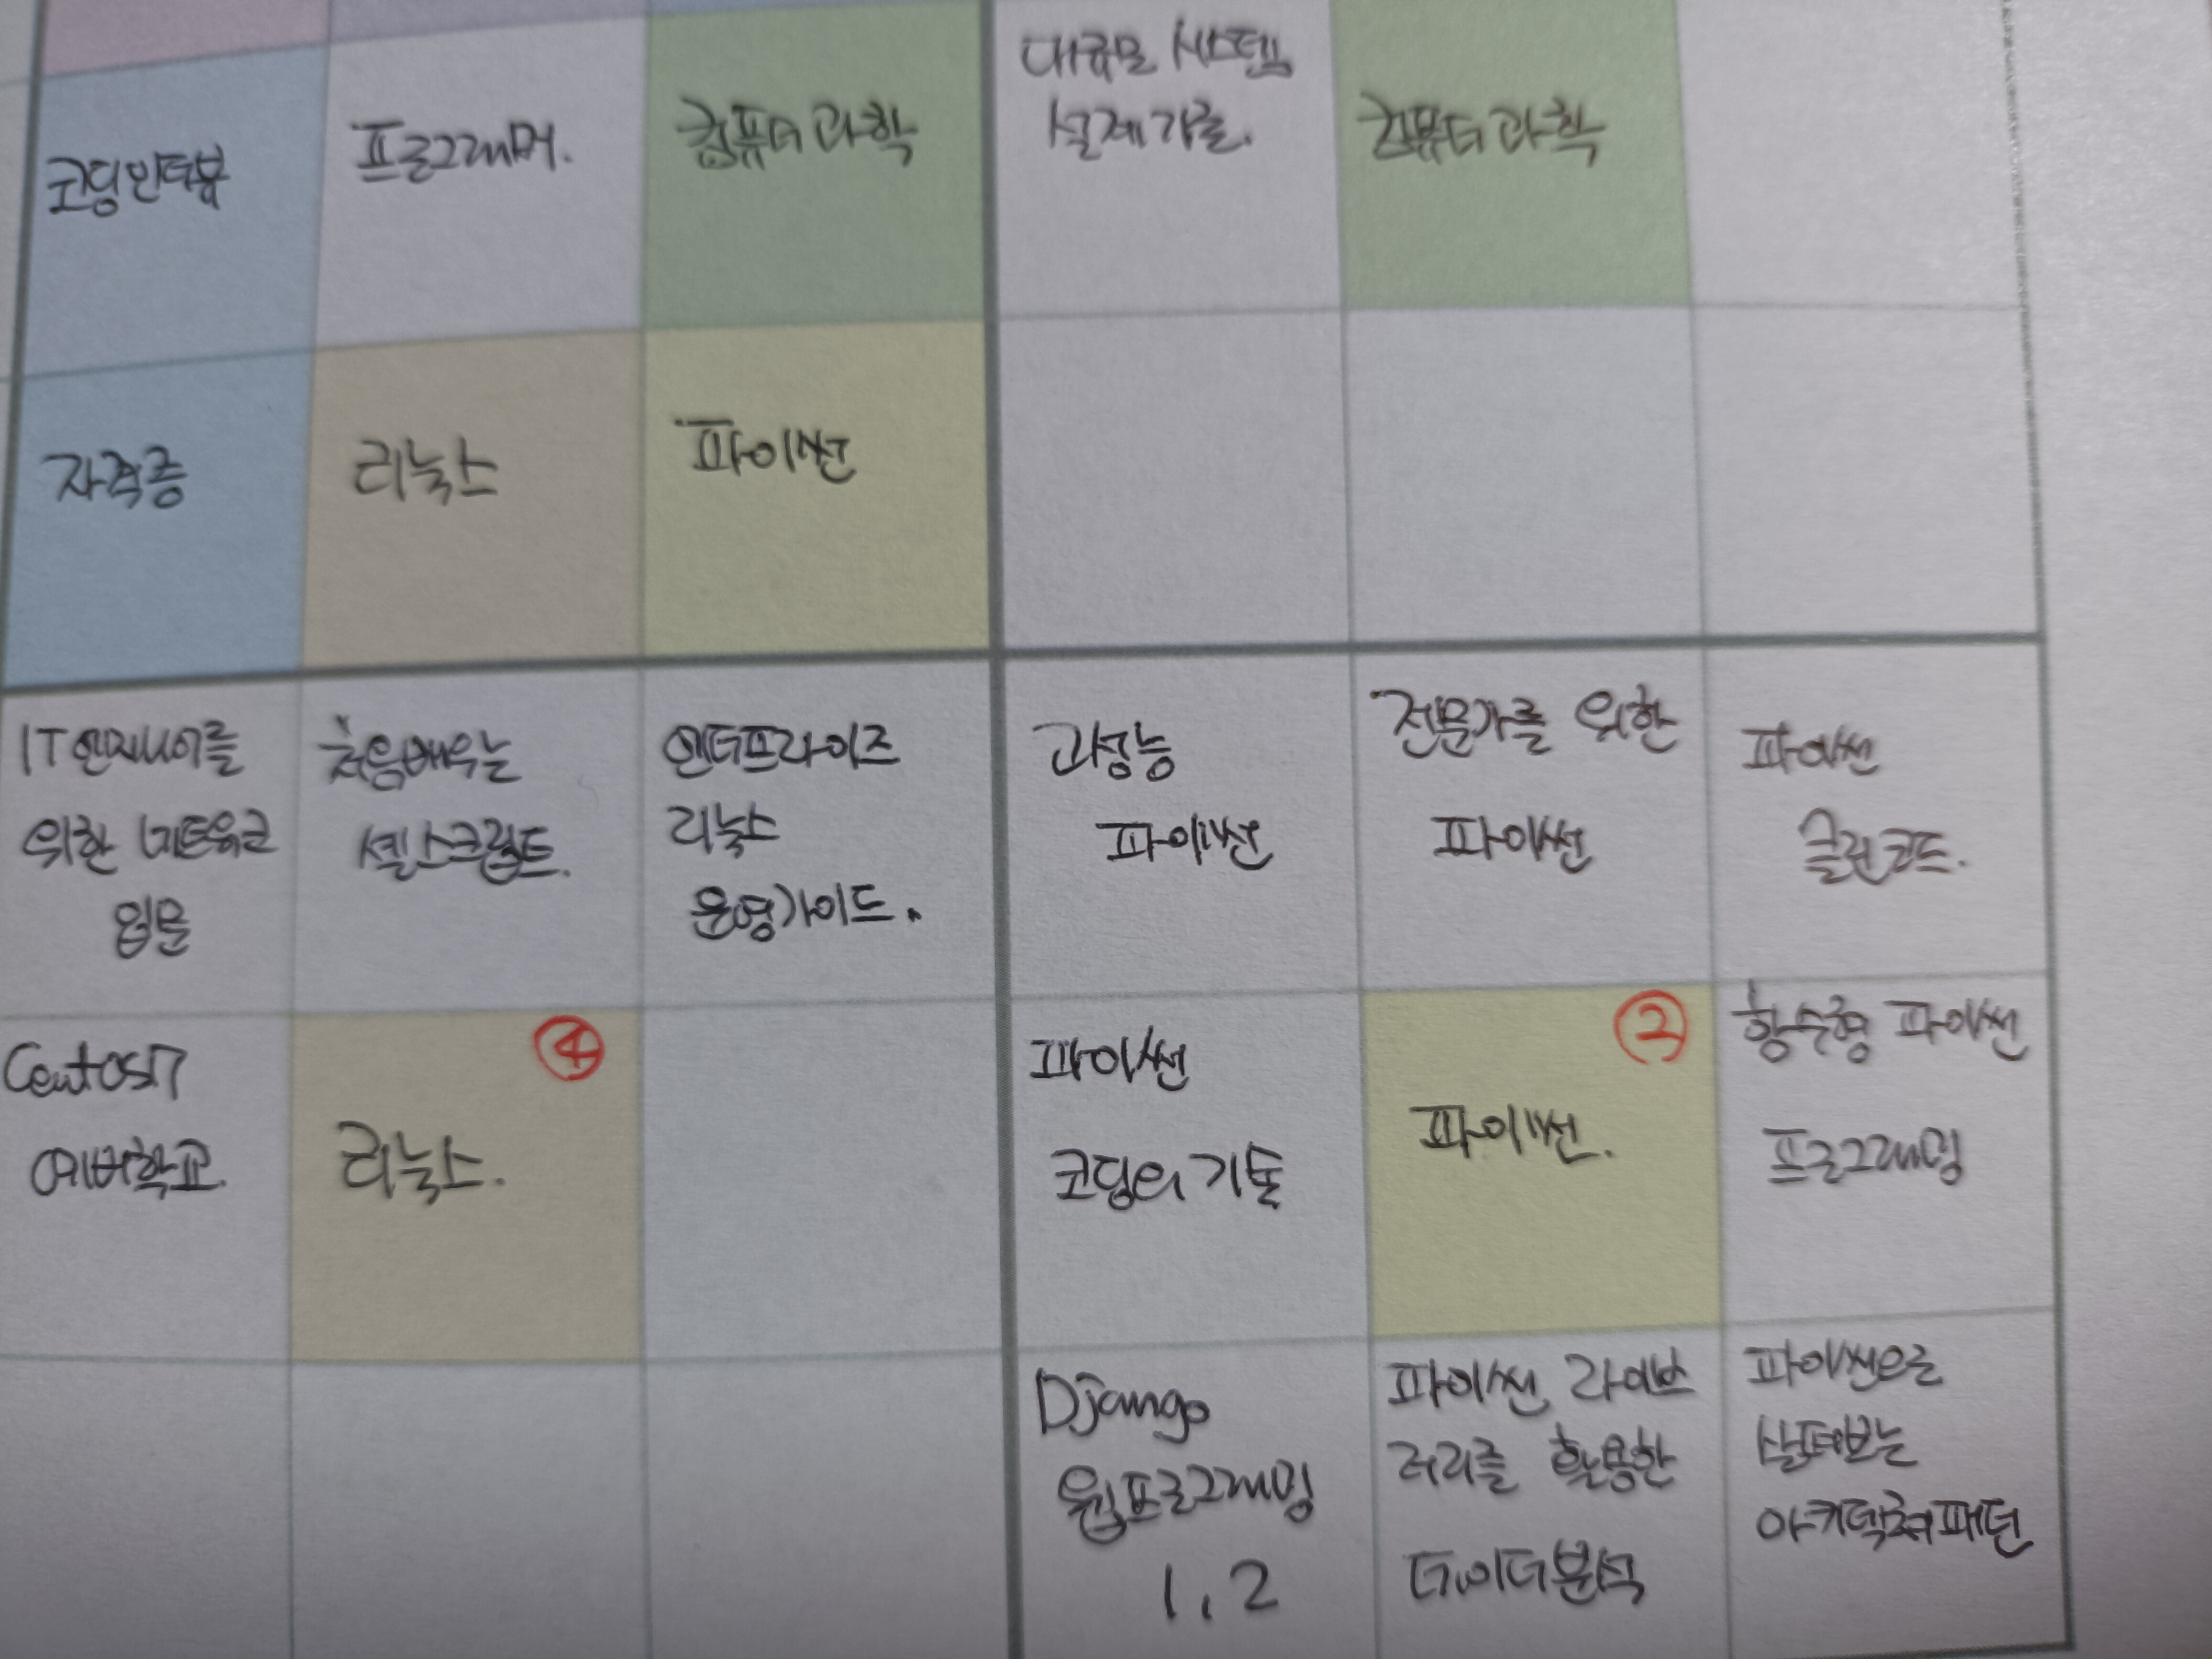 코딩인터뷰
프로그래머.
컴퓨터과학
대규모 시스템
설계 기초.
컴퓨터과학
자격증
리눅스
파이썬
IT엔지니어를
위한 네트워크
입문
처음배우는
셸스크립트.
엔터프라이즈
리눅스
운영가이드.
고성능
파이썬
전문가를 위한
파이썬
파이썬
클린코드.
CentOS7
에버학교.
리눅스.
④
파이썬
코딩의 기술
파이썬.
②
함수형 파이썬
프로그래밍
Django
웹프로그래밍
1, 2
파이썬 라이브
러리를 활용한
데이터분석
파이썬으로
살펴보는
아키텍처패턴